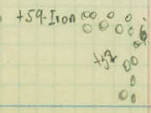 +59. Iron
+52